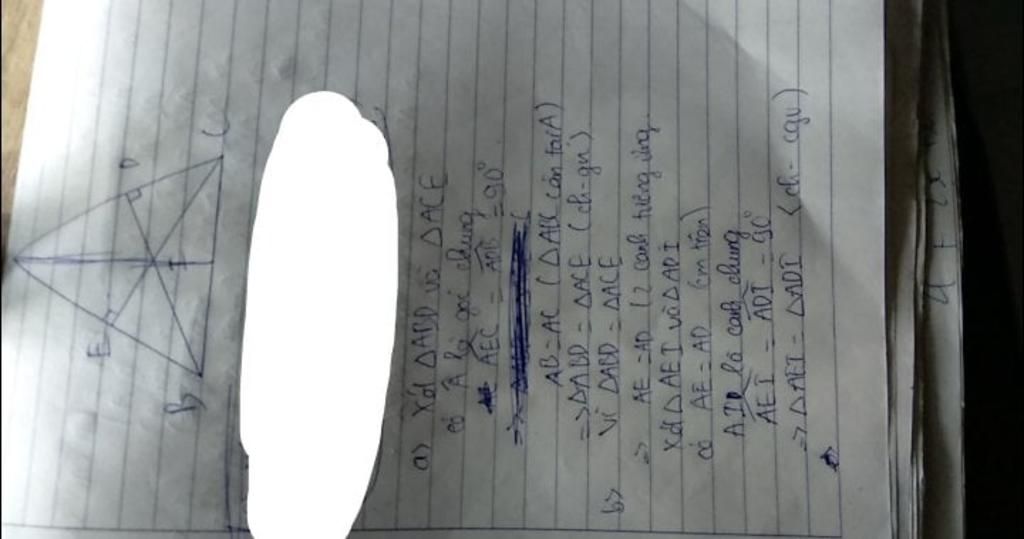 E
D
B
C
I
a) Xét △ABD và △ACE
có Â là góc chung
AEC = ADB = 90°
AB = AC (△ABC cân tại A)
=> △ABD = △ACE (ch-gn)
b) Vì △ABD = △ACE
=> AE = AD (2 cạnh tương ứng)
Xét △AEI và △ADI
có AE = AD (cm trên)
là cạnh chung
AEI = ADI = 90°
=> △AEI = △ADI (ch - cgv)